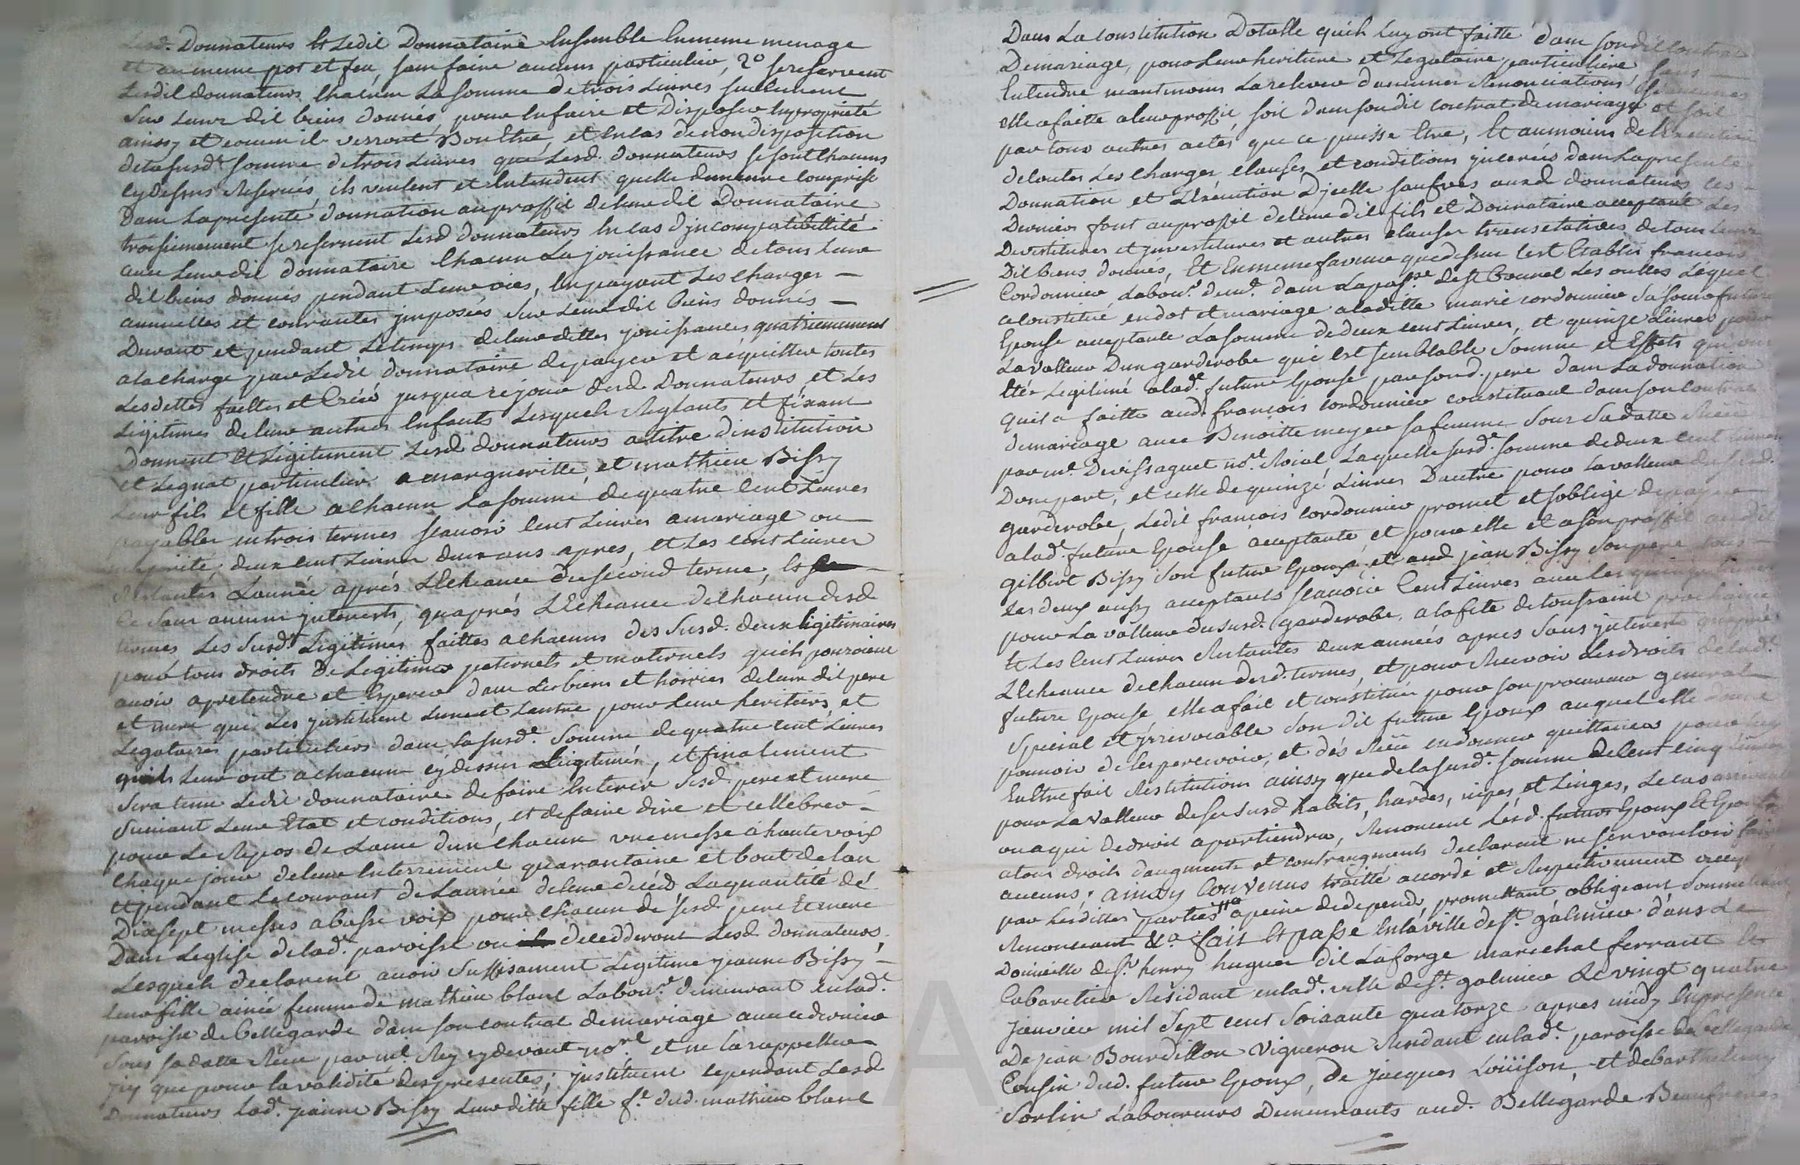 Lesd. Donnateurs et Ledit Donnataire Ensemble En meme menage
et au meme pot et feu, sans faire aucuns particulier, 2º se reservent
Lesdit donnateurs Chacun La somme de trois Livres seullement
Sur Leurs dit biens donnés, pour En faire et Disposer En proprieté
ainsy et comm'il verront Bon Etre, et En cas de non disposition
de la susd.e somme de trois Livres que Lesd. donnateurs se sont Chacuns
cy dessus Reservés, ils veulent et Entendent quelle demeure comprise
Dans La presente donnation au proffit de leur dit Donnataire
troisiemement se reservent Lesd donnateurs En cas d'incompatibillité
avec Leur dit donnataire Chacun La jouissance de tous Leurs
dit biens donnés pendant Leurs vies, En payant Les Charges –
annuelles et courantes imposées Sur Leurs dit biens donnés –
Durant et pendant Le temps de leurs dittes jouissances quatriemement
a la charge par Ledit donnataire de payer et acquitter toutes
Les dettes faittes et Créé jusqua ce jour desd. Donnateurs, et Les
Légitimes de leurs autres Enfants Lesquels Reglants et fixant
Donnent et Légitiment Lesd donnateurs a titre d'institution
et Legnat particulier a margueritte, et mathieu Bissy
Leur fils et fille a Chacun La somme de quatre Cent Livres
payables en trois termes scauoir Cent Livres a mariage ou
majorité, deux cent Livres deux ans apres, et Les Cent Livres
Restantes L'année après L'Echeance du second terme, Et
Ce sans aucuns interests, qu'après L'Echeance de Chacun desd
termes Les susd.s Légitimes faittes a Chacuns des susd. deux légitimaires
pour tous droits De Legitime paternels et maternels qu'ils pourroient
avoir a pretendre et Esperer dans Les biens et hoiries de leurs dit pere
et mere qui Les jnstituent L'une et L'autre pour Leurs heritiers, et
Legataires particuliers dans La susd.e somme de quatre cent Livres
quils Leur ont a Chacun cy dessus Legitimés, et finalement
Sera tenu Ledit donnataire de faire Enterrer sesd. pere et mere
Suivant Leur Etat et conditions, et de faire dire et cellebrer –
pour Le Repos de L'ame d'un Chacun une messe a haute voix
Chaque jour de leur Enterrement quarantaine et bout de l'an
et pendant Le courant de L'année de leur décéd La quantité de
Dix sept messes a basse voix pour Chacun de sesd pere Et mere
Dans L'eglise de lad.e paroisse ou decedderont Lesd donnateurs.
Lesquels declarent avoir suffisament Legitimé jeanne Bissy –
leur fille ainée femme de mathieu blanc Labour.r demeurant en lad.e
paroisse de Bellegarde dans son contrat de mariage avec ce dernier
Sous sa datte Reçu par me Rey cy devant no.re et ne la rappellent
jcy que pour la validité des presentes; jnstituent cependant Lesd
Donnateurs Lad.e jeanne Bissy Leur ditte fille f.e dud. mathieu blanc
Dans La Constitution Dotalle qu'ils Luy ont faitte dans son dit Contrat
De mariage, pour Leur heritiere et Legataire particuliere
Entendre neantmoins La relever d'aucunes Renonciations
Elle a faitte a leur proffit soit dans son dit contrat de mariage et soit
par tous autres actes que ce puisse Etre, Et au moins de L'Execution
De toutes Les Charges clauses et conditions jncerées dans La presente
Donnation et L'Execution D'jcelle sauf res auxd donnateurs Ces –
Derniers font au proffit de leur dit fils et Donnataire acceptant Les
Devetitures et jnvestitures et autres clauses translatives de tous Leurs
Dit Biens donnés, Et En meme faveur que dessus s'est Etablis francois
Cordonnier Labour.r demt. dans La par.sse de St Bonnet Les oulles Lequel
a constitué en dot et mariage a laditte marie cordonnier sa sœur future
Epouse acceptante La somme de deux cent Livres, et quinze Livres pour
La valleur D'un garderobe qui est semblable somme et Effets qui ont
Etté Legitimé a lad.e future Epouse par sond. pere dans La donnation
qu'il a faitte aud. francois cordonnier constituant dans son contrat
de mariage avec Benoitte meyer sa femme Sous Sa datte Reçu
par me Devissaguet no.e Roial Laquelle susd.e somme de deux cent Livres
D'une part, et celle de quinze Livres D'autre pour La valleur dud.
garderobe, Ledit francois cordonnier promet et s'oblige de payer
a lad.e future Epouse acceptante et pour elle et a son proffit
gilbert Bissy Son futur Epoux et aud jean Bissy Son pere
Les deux aussy acceptants scauoir Cent Livres avec Les quinze Livres
pour La valleur du susd. garderobe, a la fete de toussaint prochaine
Et Les Cent Livres Restantes deux années apres sans jnterest qu'apres
L'Echeance de Chacun desd. termes, et pour Recevoir Lesd droits de lad.e
future Epouse elle a fait et constitué pour son procureur general
Special et jrrevocable Son dit futur Epoux auquel elle donne
pouvoir de les percevoir, et dès Reçu en donner quittance pour Luy
Entre fait Restitution ainsy que de la susd. somme de Cent cinq Livres
pour La valleur de ses susd habits, hardes, nipes, et Linges, Le cas arrivant
ou a qui De droit apartiendra, Renoncent Lesd. futurs Epoux Et Epouse
a tous droits d'augments et contraugments declarent ne s'en vouloir faire
aucuns; ainsy Convenus traitté accordé et Respectivement accepté
par Lesdittes parties a peine de depends promettant obligeant Soumettant
Renonceant &.a fait Et passé En la ville de S.t galmier dans Le
Domicille de S.r henry huguet dit Laforge marechal ferrant Et
Cabaretier Residant en lad.e ville de S.t galmier Le vingt quatre
Janvier mil sept cent soixante quatorze apres midy En presence
De jean Bourdillon Vigneron Residant en lad.e paroisse de Bellegarde
Cousin dud. futur Epoux, De jacques Loüison, et de barthelemy
Sorlin Laboureurs Demeurants aud. Bellegarde Beaufreres